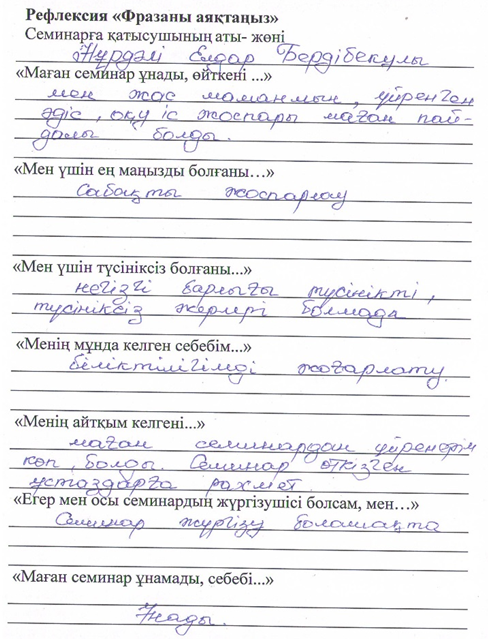 Рефлексия «Фразаны аяқтаңыз»
Семинарға қатысушының аты- жөні
Нұрдәлі Елдар Бердібекұлы
«Маған семинар ұнады, өйткені ...»
мен жас маманмын, үйренген
әдіс, оқу іс жоспары маған пай-
далы болды.
«Мен үшін ең маңызды болғаны…»
Сабақты жоспарлау
«Мен үшін түсініксіз болғаны...»
негізгі барлығы түсінікті,
түсініксіз жерлері болмада
«Менің мұнда келген себебім...»
біліктілігімді жоғарлату.
«Менің айтқым келгені...»
маған семинардан үйренерім
көп болды. Семинар өткізген
ұстаздарға рахмет.
«Егер мен осы семинардың жүргізушісі болсам, мен…»
Семинар жүргізу болашақта
«Маған семинар ұнамады, себебі...»
Ұнады.